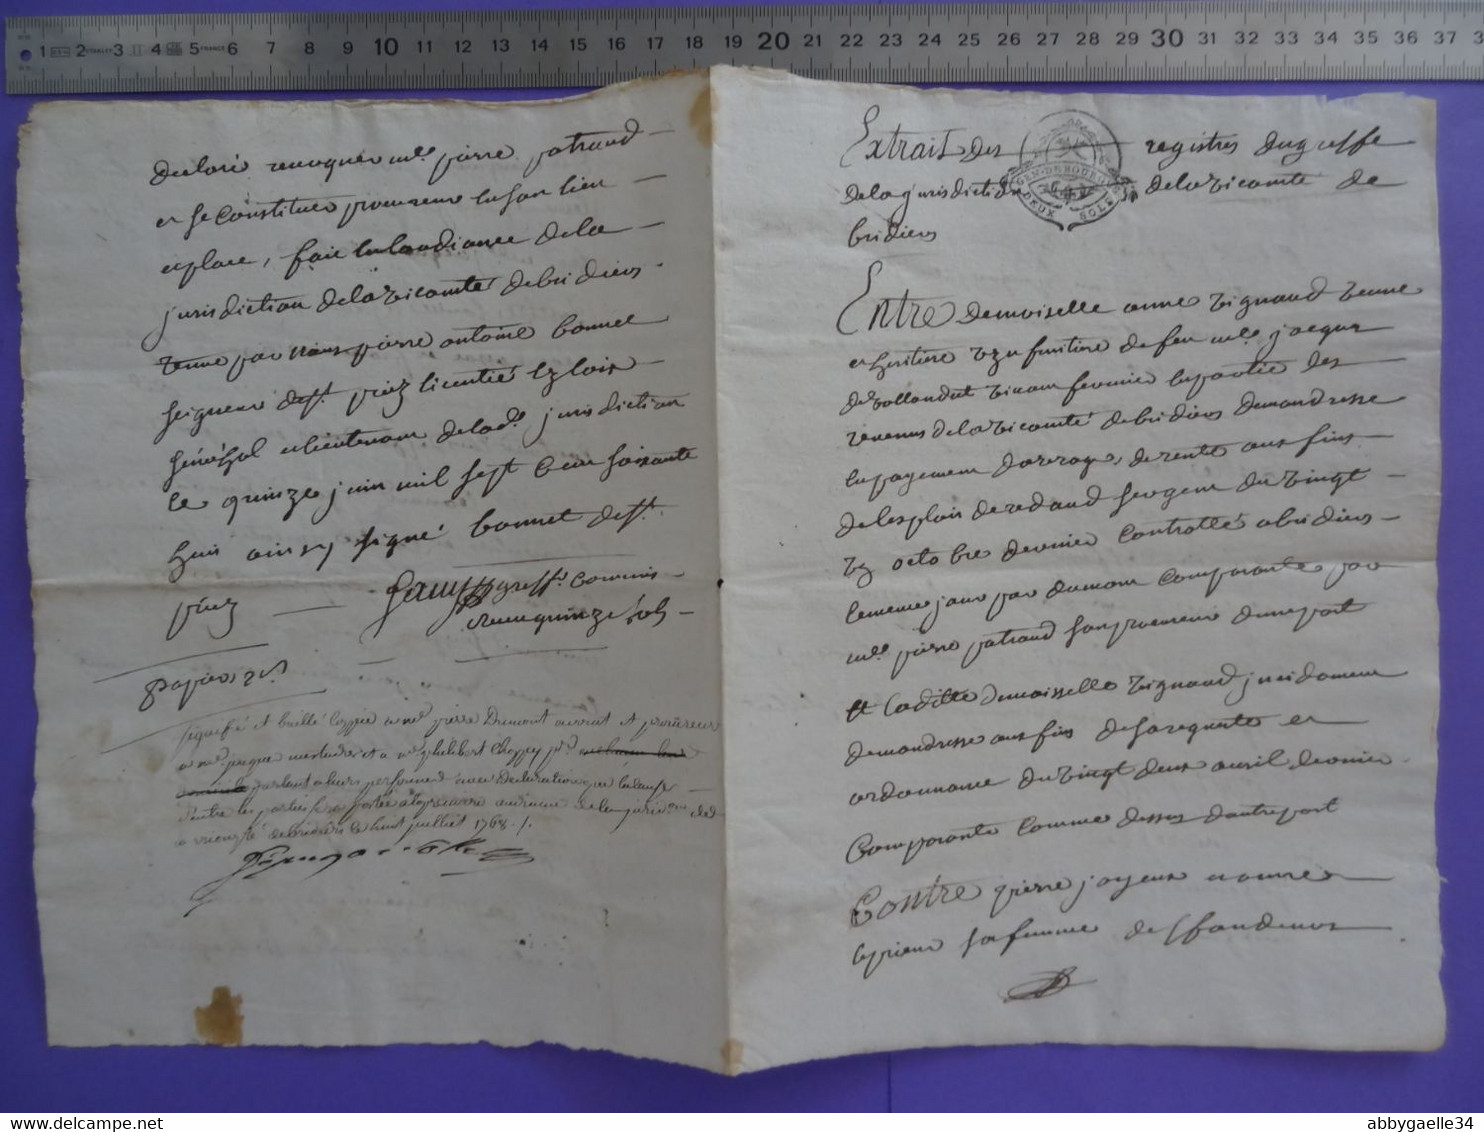 1 2 3 4 5 6 7 8 9 10 11 12 13 14 15 16 17 18 19 20 21 22 23 24 25 26 27 28 29 30 31 32 33 34 35 36 37
FRANCE
declaré revoquer me. pierre patraud
et se constituer procureur en son lieu
et place, fait en laudiance de la
jurisdiction de la vicomté de bridiers
tenue par nous pierre antoine bonnet
seigneur de st. priez licentié ez loix
sénéchal et lieutenant de lad. jurisdiction
le quinze juin mil sept cent soixante
huit ainsy signé bonnet de st.
priez
greff. commis
receu quinze sols
papier 2s.
signifié et baillé coppie a me. pierre Dumont avocat et procureur
a me. philibert
parlant a leurs personnes avec declaration que la cause
d'entre les parties sera portée a la premiere audiance de la jurisd.on
vicomté de bridiers le huit juilliet 1768./.
Extrait des registres du greffe
de la jurisdiction de la vicomté de
bridiers
GEN. DE BOURGES
DEUX SOLS
Entre demoiselle anne vignaud veuve
et heritiere uzufruitiere de feu me. jacques
de vollondat vivant fermier en partie des
revenus de la vicomté de bridiers demandresse
en payement darrerages de rente aux fins
de lesploit de redaud sergent du vingt
uz octobre dernier controllé a bridiers
le meme jour par dumont comparante par
me. pierre patraud son procureur dune part
Et laditte demoiselle vignaud
demandresse aux fins de sa requete et
ordonnance du vingt deux avril dernier
Comparante comme dessus dautre part
Contre pierre joyeux
sa femme
www.delcampe.net
abbygaelle34